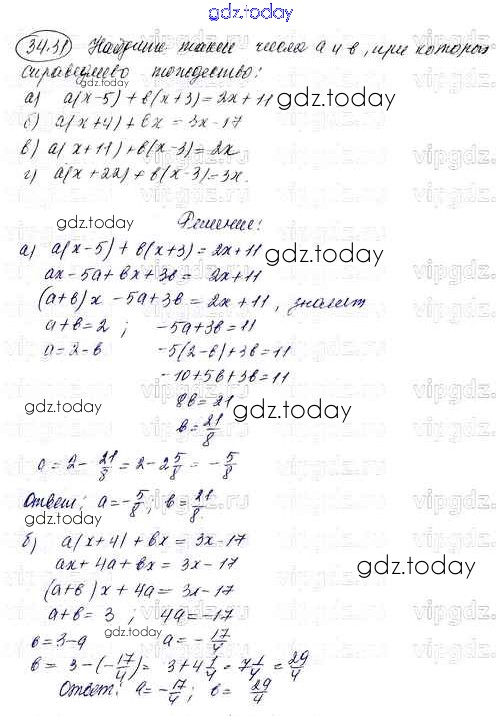 gdz.today
34.31 Найдите такие числа a и b, при которых
справедливо тождество:
а) a(x-5) + b(x+3) = 2x+11
б) a(x+4) + bx = 3x-17
в) a(x+11) + b(x-3) = 2x
г) a(x+22) + b(x-3) = 3x.
Решение:
а) a(x-5) + b(x+3) = 2x+11
ax-5a+bx+3b = 2x+11
(a+b)x -5a+3b = 2x+11, значит
a+b=2 ; -5a+3b=11
a=2-b -5(2-b)+3b=11
-10+5b+3b=11
8b=21
b=21/8
a=2-21/8=2-2 5/8=-5/8
Ответ: a=-5/8; b=21/8
б) a(x+4)+bx=3x-17
ax+4a+bx=3x-17
(a+b)x+4a=3x-17
a+b=3 ; 4a=-17
b=3-a a=-17/4
b=3-(-17/4)=3+4 1/4=7 1/4=29/4
Ответ: a=-17/4; b=29/4
gdz.today
gdz.today
gdz.today
gdz.today
gdz.today
gdz.today
gdz.today
gdz.today
gdz.today
gdz.today
vipgdz.ru